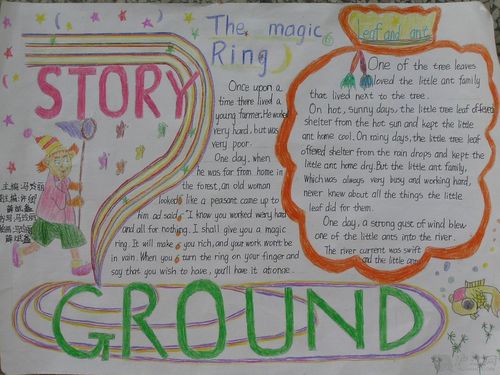 The magic
Ring
STORY
Once upon a
time there lived a
young farmer. He worked
very hard, but was
very poor.
One day, when
he was far from home in
the forest, an old woman
looked like a peasant came up to
him ad said: "I know you worked very hard
and all for nothing. I shall give you a magic
ring. It will make you rich, and your work won't be
in vain. When you turn the ring on your finger and
say that you wish to have, you'll have it at once.
leaf and ant
One of the tree leaves
loved the little ant family
that lived next to the tree.
On hot, sunny days, the little tree leaf offered
shelter from the hot sun and kept the little
ant home cool. On rainy days, the little tree leaf
offered shelter from the rain drops and kept the
little ant home dry. But the little ant family,
which was always very busy and working hard,
never knew about all the things the little
leaf did for them.
One day, a strong gust of wind blew
one of the little ants into the river.
The river current was swift
and the little ant
主编:
GROUND